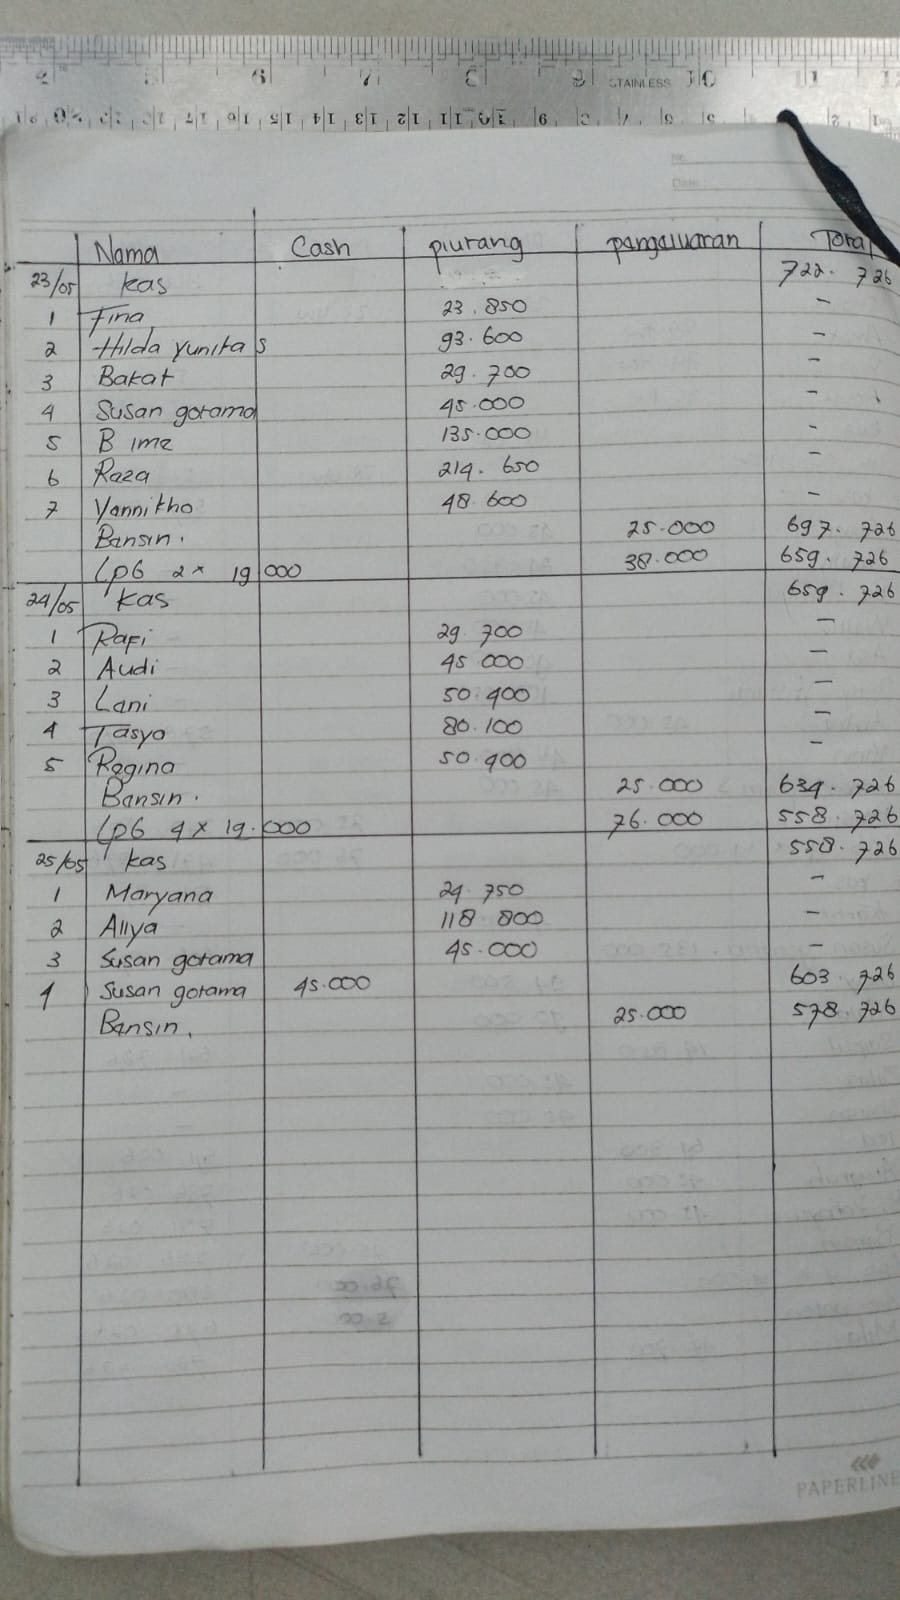 STAINLESS
No.
Date :
Nama Cash piutang pengeluaran Total
23/05 kas 722.726
1 Fina 23.850 -
2 Hilda yunita s 93.600 -
3 Bakat 29.700 -
4 Susan gotama 45.000 -
5 Bima 135.000 -
6 Raza 214.650 -
7 Yannitho 48.600 -
Bensin. 25.000 697.726
LPG 2 x 19 000 38.000 659.726
24/05 kas 659.726
1 Rafi 29.700 -
2 Audi 45.000 -
3 Lani 50.400 -
4 Tasya 80.100 -
5 Regina 50.400 -
Bensin. 25.000 634.726
LPG 4 x 19.000 76.000 558.726
25/05 kas 558.726
1 Maryana 24.750 -
2 Aliya 118.800 -
3 Susan gotama 45.000 -
4 Susan gotama 45.000 603.726
Bensin. 25.000 578.726
PAPERLINE